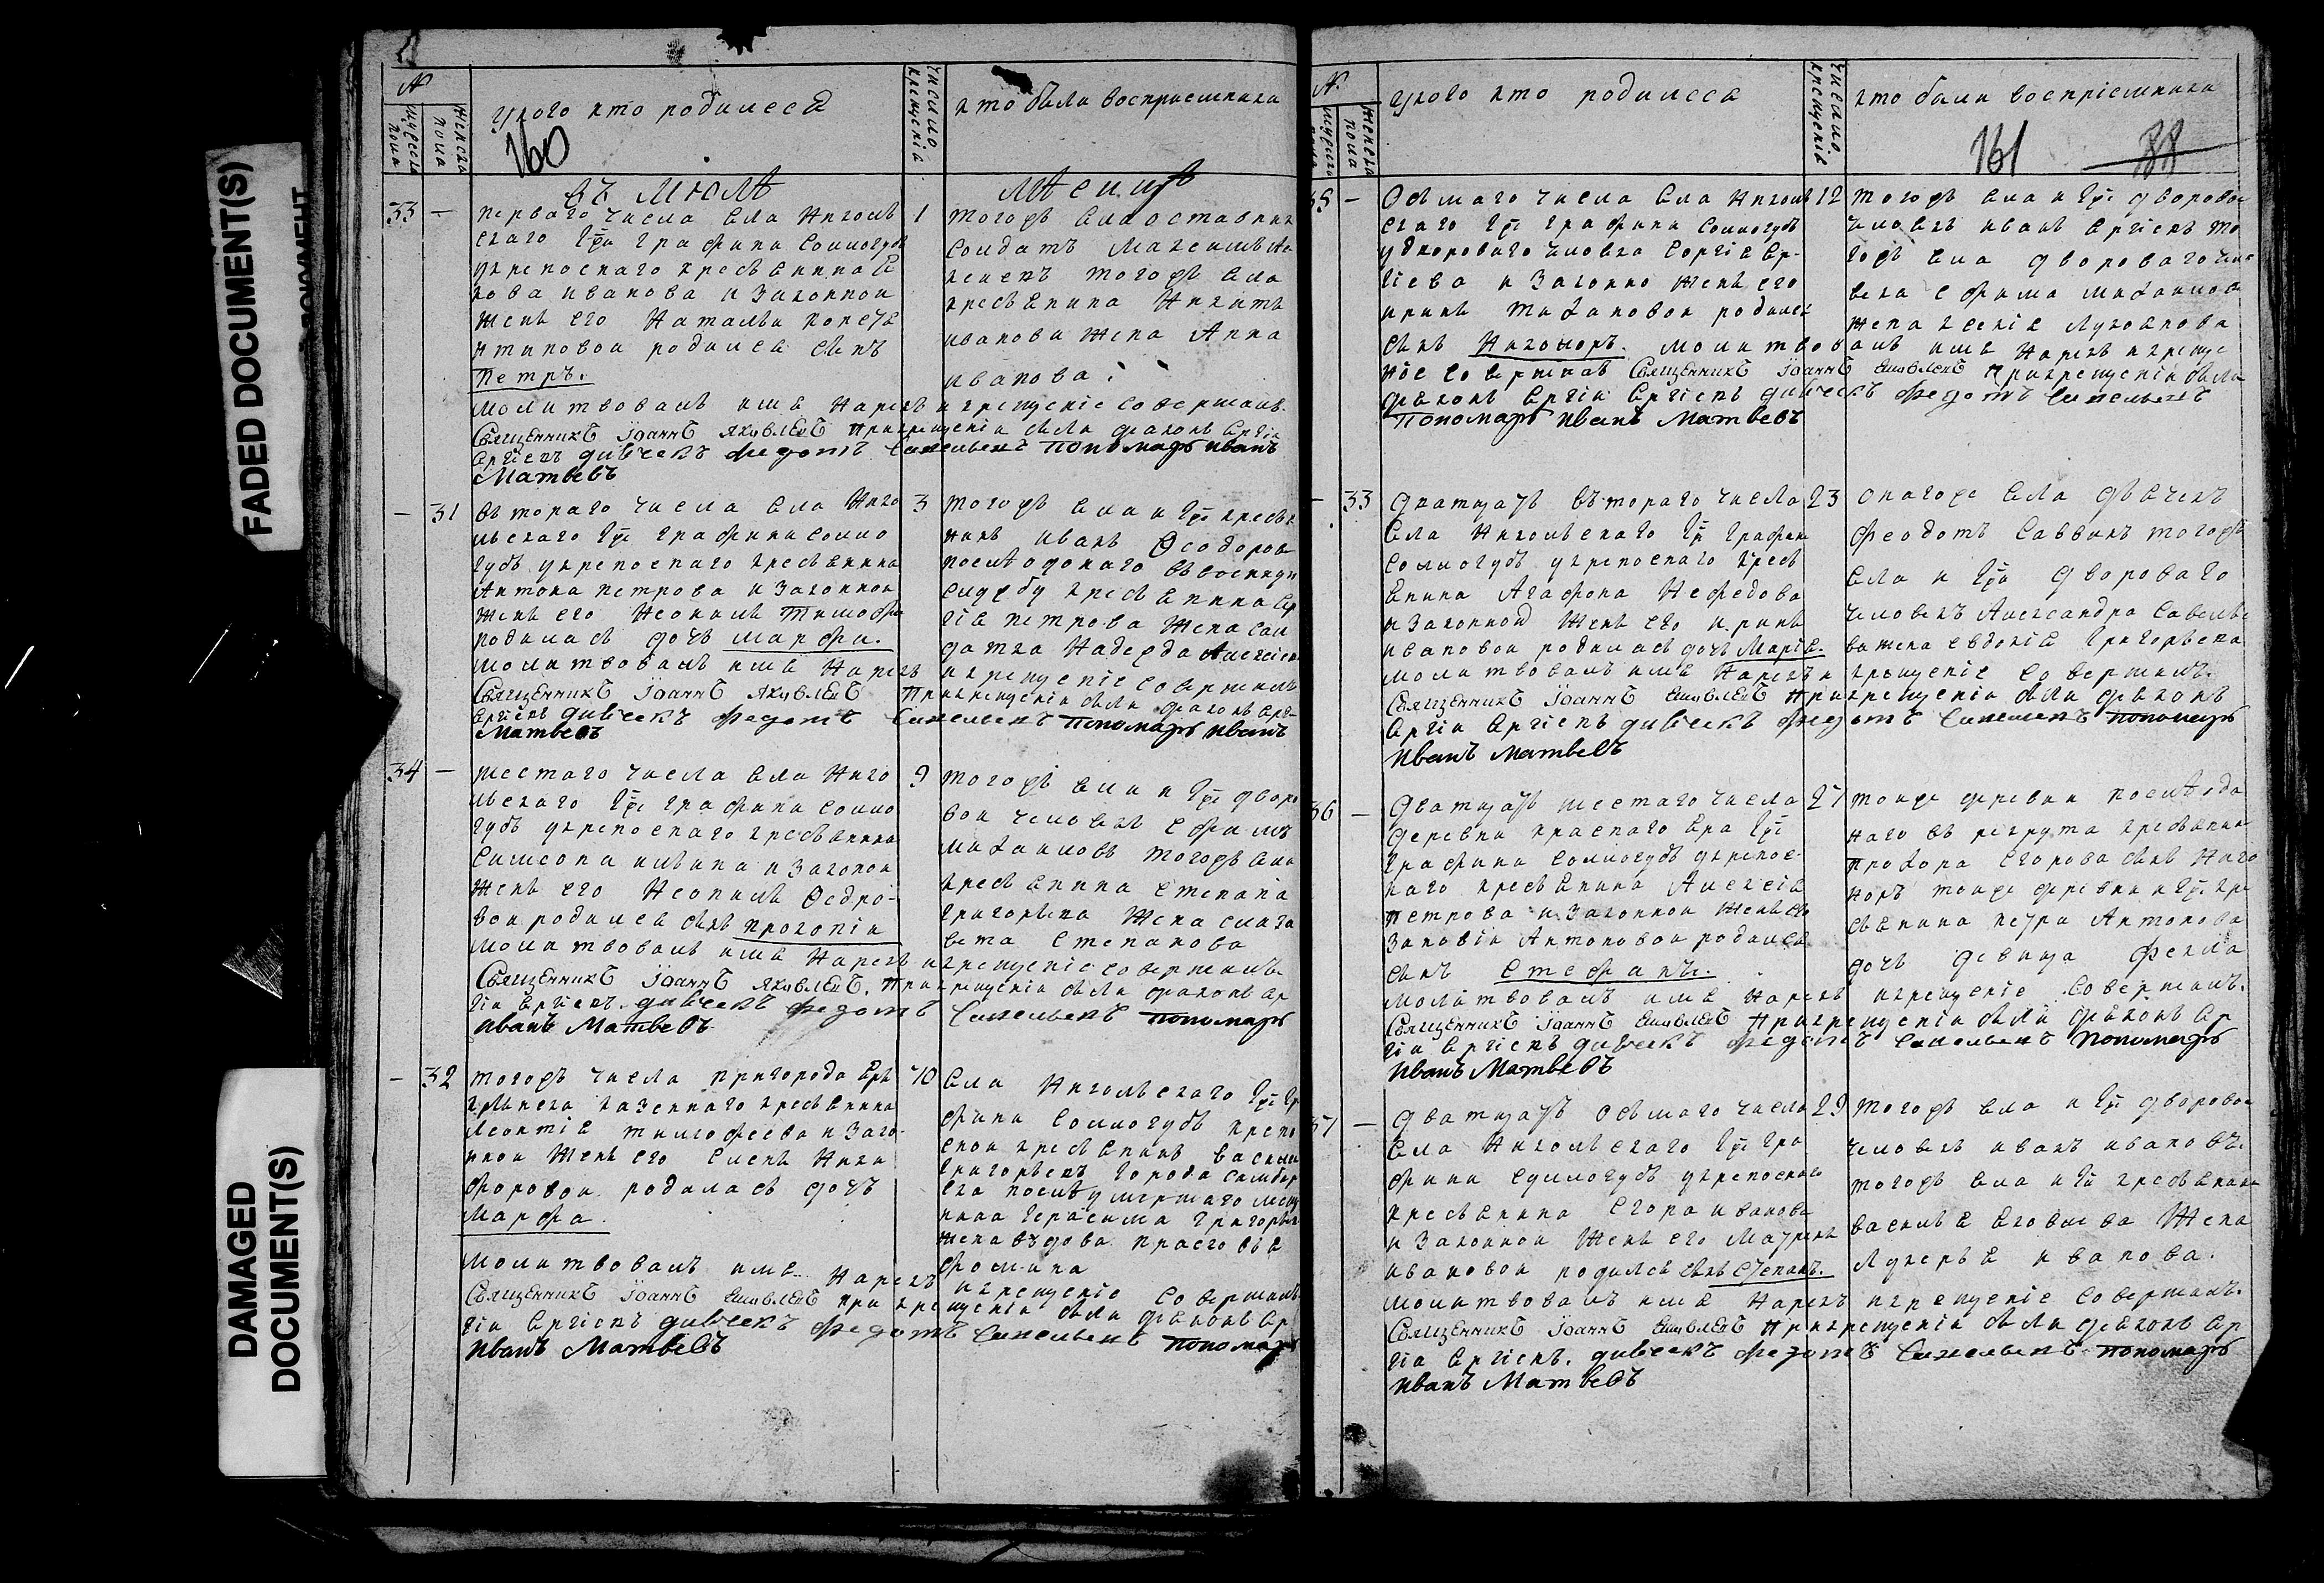 FADED DOCUMENT(S)
DAMAGED
DOCUMENT(S)
№
мужеска пола
женска пола
укого кто родился
160
число крещенія
кто были восприемники
въ июлѣ
мѣсицѣ
33 — перваго числа села Николь 1
скаго Гпжи графини Соллогубъ
укрепоснаго кресьянина Я
кова иванова и законной
жене его Натальи
родился сынъ
петръ.
тогожъ села оставник
солдатъ Максимъ
тогожъ села
кресьянина Никиты
иванова жена Анна
иванова.
молитвовалъ имя нарекъ и крещение совершалъ.
Священникъ Іоаннъ Яковлевъ при крещении были дьяконъ Сергїи
Сергїевъ дьячекъ Федотъ Савельевъ Пономарь иванъ
Матвеевъ
— 31 второго числа села Нико 3
льскаго Гпжи графини Солло
губъ укрепоснаго кресьянина
Антона петрова и законной
жене его Неониле Тимофе
родилась дочь марфа.
тогожъ села и Гпжи кресья
нинъ иванъ Ѳеодоров
кресьянина Сер
гія петрова жена сол
датка Надежда Алексеев
молитвовалъ имя нарекъ и крещение совершалъ
Священникъ Іоаннъ Яковлевъ При крещении были дьяконъ Сер
Сергїевъ дьячекъ Федотъ Савельевъ Пономарь иванъ
Матвеевъ
34 — шестаго числа села Нико 9
льскаго Гпжи графини Солло
губъ укрепоснаго кресьянина
Симеона ильина и законой
жене его Неониле Ѳедро-
вой родился сынъ прокопїи
тогожъ села и Гпжи дворо
вой человекъ Ефимъ
михаиловъ тогожъ села
кресьянина степана
григорьева жена елиза
вета Степанова
молитвовалъ имя нарекъ и крещение совершалъ
Священникъ Іоаннъ Яковлевъ. При крещении были дьяконъ Сер
гїи Сергїевъ дьячекъ Федотъ Савельевъ пономарь
иванъ Матвеевъ
— 32 тогожъ числа пригорода 10
казеннаго кресьянина
Леонтїя тимофеева и зако
нной жене его Елене Ники
форовой родилась дочь
марфа.
села Никольскаго Гпжи гр
фини Соллогубъ крепо
сной кресьянинъ василий
григорьевъ города симбир
ска после умершаго
герасима григорьева
жена вдова прасковья
фомина
молитвовалъ имя нарекъ и крещение совершалъ
Священникъ Іоаннъ Яковлевъ при крещении были дьяконъ Сер
гїи Сергїевъ дьячекъ Федотъ Савельевъ пономарь
иванъ Матвеевъ
№
мужеска
женска пола
укого кто родился
число крещенія
кто были восприемники
161 88
35 — Осьмаго числа села Николь 12
скаго Гпжи графини Соллогубъ
у двороваго человека Сергїя Сер-
гїева и законно жене его
ирине Тихановой родился
сынъ Никоноръ.
тогожъ села и Гпжи дворовой
человекъ иванъ Сергїевъ то
гожъ села двороваго чело
века ефима михаилова
жена Лукоянова
молитвовалъ имя нарекъ и креще
ние совершалъ Священникъ Іоаннъ Яковлевъ при крещении были
дьяконъ Сергїи Сергїевъ дьячекъ Федотъ Савельевъ
Пономарь иванъ Матвеевъ
— 33 Дватцать второго числа 23
села Никольскаго Гпжи графини
Соллогубъ укрепоснаго кресь
янина Агафона Нефедова
и законной жене его ирине
ивановой родилась дочь Марїя.
онагоже села дьячекъ
Феодотъ Саввинъ тогожъ
села и Гпжи двороваго
человекъ Александра Савелье
ва жена евдокїя григорьева
молитвовалъ имя нарекъ и крещение совершалъ.
Священникъ Іоаннъ Яковлевъ при крещении были дьяконъ
Сергїи Сергїевъ дьячекъ Федотъ Савельевъ пономарь
иванъ Матвеевъ
36 — Дватцать шестаго числа 27
деревни краснаго Яра Гпжи
графини Соллогубъ укрепос-
наго кресьянина Алексея
петрова и законной жене его
Зиновїи Антоновой родился
сынъ Стефанъ.
тоиже деревни
наго въ рекруты кресьянина
прохора егорова сынъ Нико
норъ тоиже деревни и Гпжи кре
сьянина петра Антонова
дочь девица фекла
молитвовалъ имя нарекъ и крещение совершалъ.
Священникъ Іоаннъ Яковлевъ при крещении были дьяконъ Сер
гїи Сергїевъ дьячекъ Федотъ Савельевъ Пономарь
иванъ Матвеевъ
37 — Дватцать осьмаго числа 29
села Никольскаго Гпжи гра
фини Соллогубъ укрепоснаго
кресьянина егора иванова
и законной жене его Матрене
ивановой родился сынъ степанъ.
тогожъ села и Гпжи дворовой
человекъ иванъ ивановъ.
тогожъ села и Гпжи кресьянина
василья яковлева жена
Лукерья иванова.
молитвовалъ имя нарекъ и крещение совершалъ.
Священникъ Іоаннъ Яковлевъ при крещении были дьяконъ Сер
гїи Сергїевъ. дьячекъ Федотъ Савельевъ пономарь
иванъ Матвеевъ